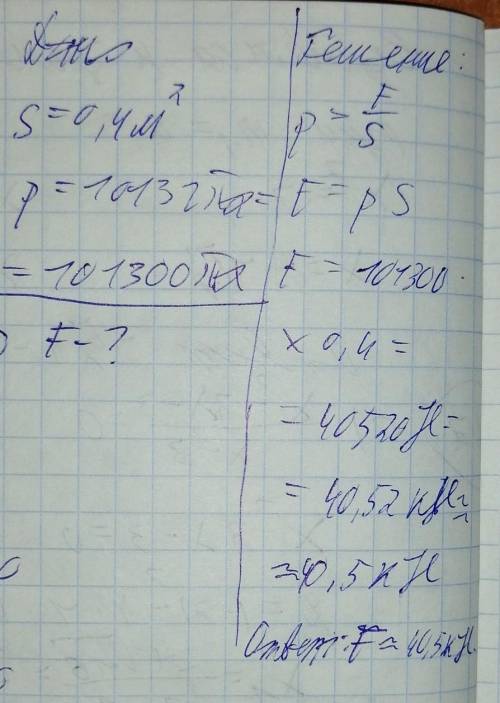 Дано
S = 0,4 м²
p = 1013 гПа =
= 101300 Па
F - ?
Решение:
p = F/S
F = p S
F = 101300 ·
× 0,4 =
= 40520 Н =
= 40,52 кН ≈
≈ 40,5 кН
Ответ: F ≈ 40,5 кН.